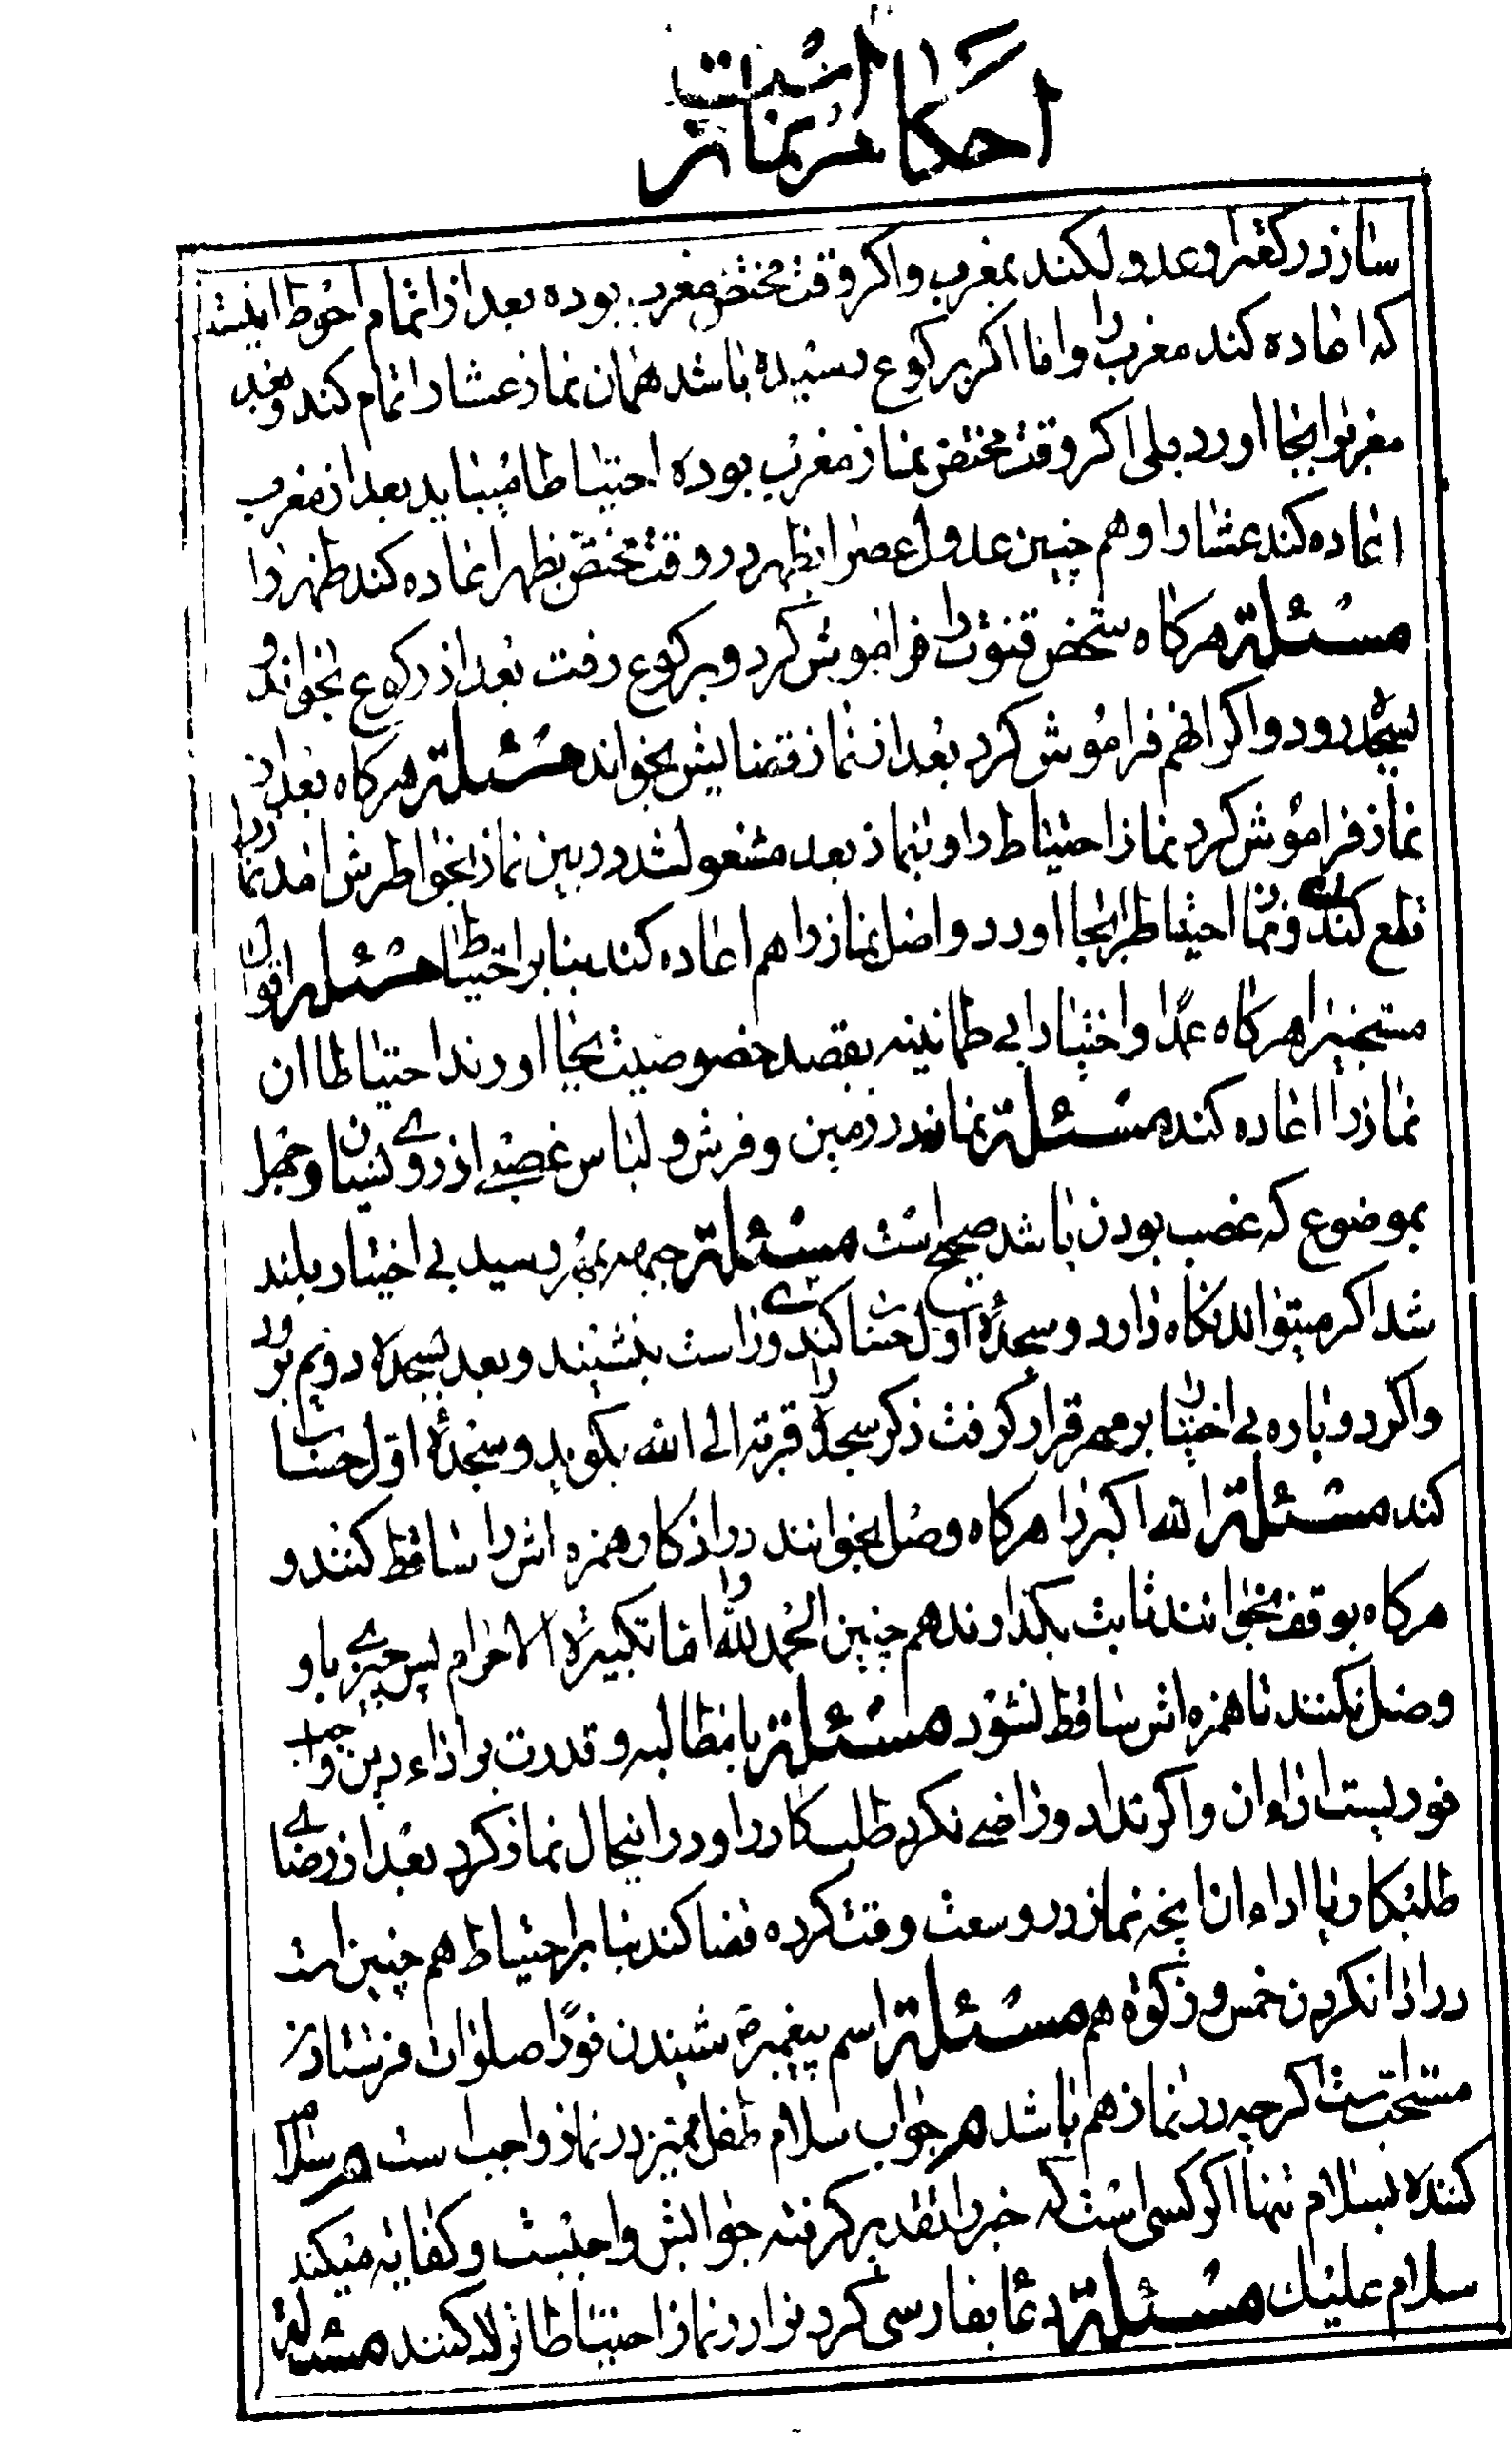 احکام نماز است
سازد رکعترا و عدول کند بمغرب و اکر وقت مختص مغرب بوده بعد از اتمام احوط اینست
که اعاده کند مغرب را و اما اکر برکوع رسیده باشد همان نماز عشا را تمام کند و بعد
مغربرا بجا اورد بلی اکر وقت مختص نماز مغرب بوده احتیاطا میباید بعد از مغرب
اعاده کند عشا را و هم چنین عدول عصر ا بظهر در وقت مختص بظهر اعاده کند ظهر را
مسئلة هرکاه شخص قنوت را فراموش کرد و برکوع رفت بعد از رکوع بخواند و
بسجده رود و اکر انهم فراموش کرد بعد از نماز قضایش بخواند مسئلة هرکاه بعد از
نماز فراموش کرد نماز احتیاط را و بنماز بعد مشغول شد در بین نماز بخواطرش امد نماز را
قطع کند و نماز احتیاط را بجا اورد و اصل نماز را هم اعاده کند بنا بر احتیاط مسئلة اقوال
مستحبه را هرکاه عمدا و اختیارا بی طمانینه بقصد خصوصیت بجا اورند احتیاطا ان
نماز را اعاده کند مسئلة نماز در زمین و فرش و لباس غصبی از روی نسیان و جهل
بموضوع که غصب بودن باشد صحیح است مسئلة جبهه بمهر رسید بی اختیار بلند
شد اکر میتواند نکاه دارد و سجده اول حساب کند و راست بنشیند و بعد بسجده دویم برود
و اکر دوباره بی اختیار بر مهر قرار کرفت ذکر سجده را قربة الی الله بکوید و سجده اول حساب
کند مسئلة الله اکبر را هرکاه وصل بخوانند در اذکار همزه اش را ساقط کنند و
هرکاه بوقف بخوانند ثابت بکذارند هم چنین الحمد لله را اما تکبیرة الاحرام پس چیزی باو
وصل نکنند تا همزه اش ساقط نشود مسئلة با مطالبه و قدرت بر اداء دین واجب
فوریست اداء ان و اکر نداد و راضی نکرد طلبکار را و در اینحال نماز کرد بعد از رضای
طلبکار یا اداء ان انچه نماز در وسعت وقت کرده قضا کند بنا بر احتیاط هم چنین است
در ادا نکردن خمس و زکوة هم مسئلة اسم پیغمبر ص شنیدن فورا صلوات فرستادن
مستحب است اکرچه در نماز هم باشد هر جواب سلام طفل ممیز در نماز واجب است هر سلام
کننده بسلام تنها اکر کسی است که خبر را تقدیر کرفته جوابش واجبست و کفایه میکند
سلام علیک مسئلة دعا بفارسی کردن را در نماز احتیاطا ترک کنند مسئلة